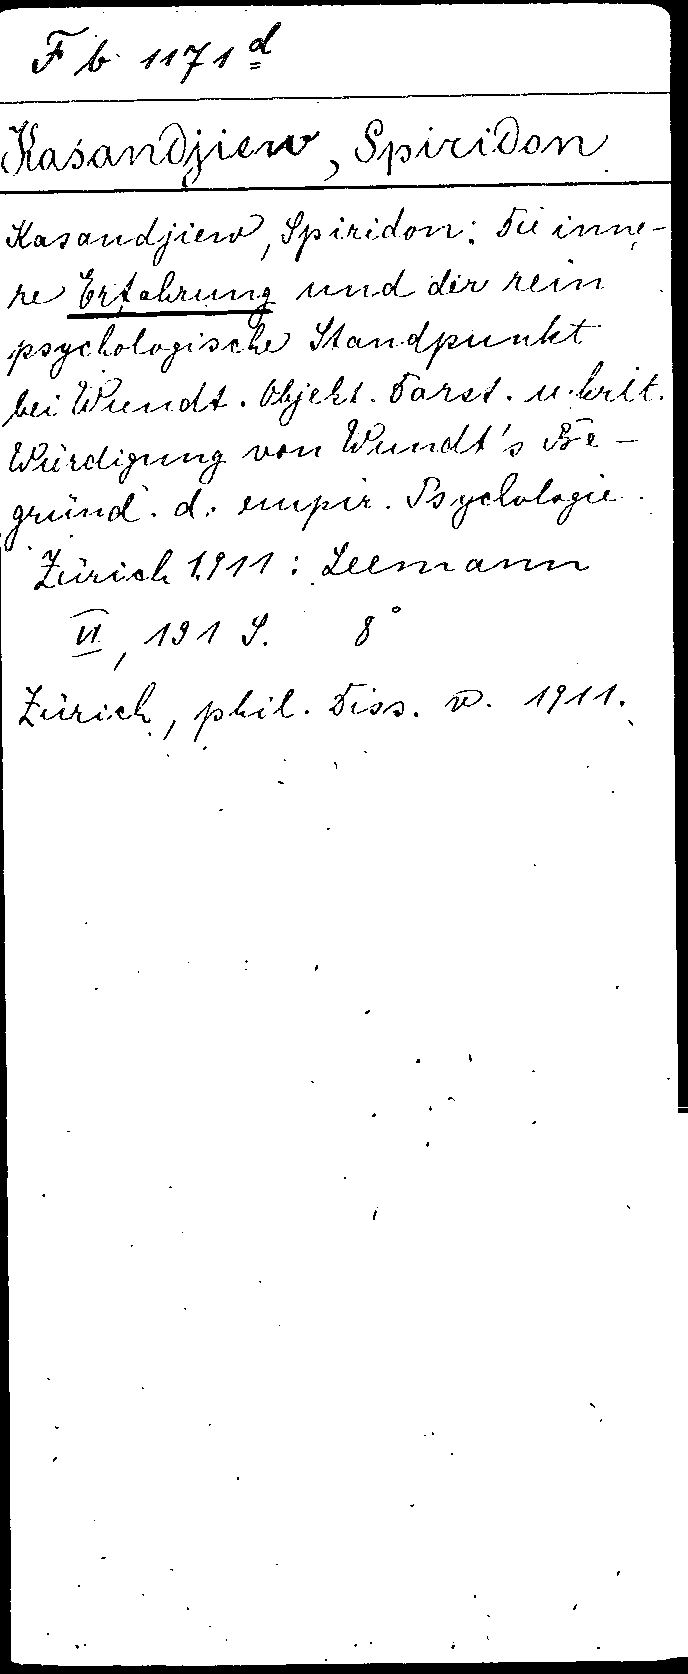 F b 1171 d
Kasandjiew, Spiridon
Kasandjiew, Spiridon: Die inne-
re Erfahrung und der rein
psychologische Standpunkt
bei Wundt. Objekt. Darst. u. krit.
Würdigung von Wundt's Be-
gründ. d. empir. Psychologie.
Zürich 1911: Leemann
VI, 191 S. 8°
Zürich, phil. Diss. v. 1911.